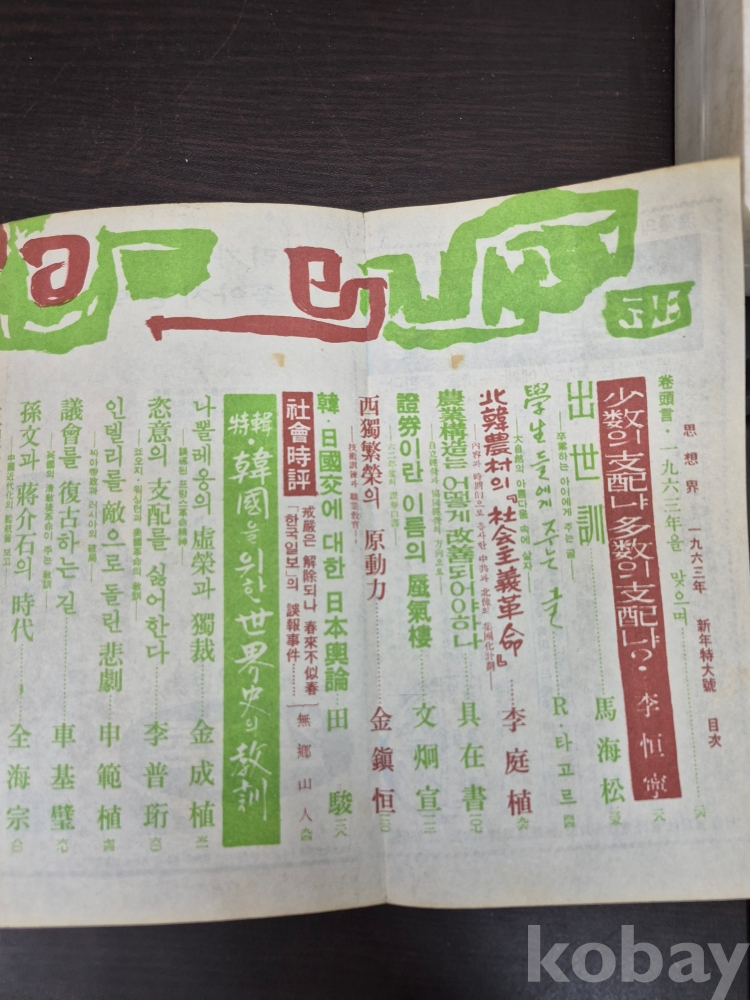 思想界 一九六三年 新年特大號 目次
卷頭言 · 一九六三年을 맞으며
少数의 支配냐 多数의 支配냐? 李恒寧
出世訓 馬海松
卒業하는 아이에게 주는 글
学生들에게 주는 글 R·타고르
大自然의 아름다움 속에 살자
北韓農村의『社会主義革命』 李庭植
農業構造는 어떻게 改善되어야하나 具在書
證券이란 이름의 蜃氣樓 文炯宣
西獨繁榮의 原動力 金鎭恒
技術訓練과 職業敎育
韓·日國交에 대한 日本輿論 田駿
社會時評
戒嚴은 解除되나 春來不似春
「한국일보」의 誤報事件 無鄕山人
特輯·韓國을 위한 世界史의 敎訓
나뽈레옹의 虛榮과 獨裁 金成植
恣意의 支配를 싫어한다 李普珩
인텔리를 敵으로 돌린 悲劇 申範植
議會를 復古하는 길 車基璧
孫文과 蔣介石의 時代 全海宗
kobay